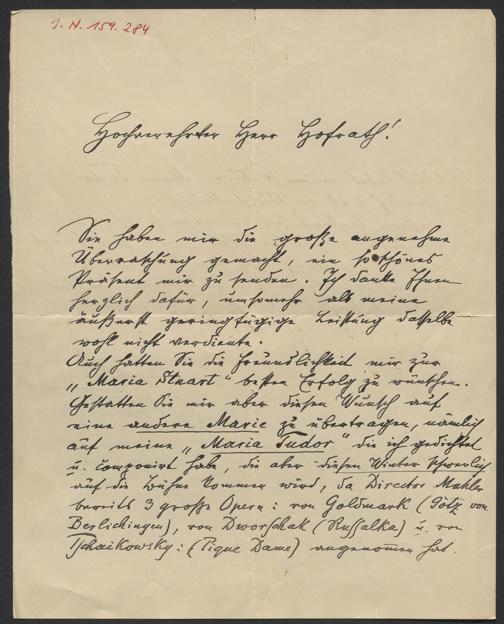 I. N. 159.284
Hochverehrter Herr Hofrath!
Sie haben mir die große angenehme
Überraschung gemacht, ein so schönes
Präsent mir zu senden. Ich danke Ihnen
herzlich dafür, umsomehr als meine
äußerst geringfügige Leistung dasselbe
wohl nicht verdiente.
Auch hatten Sie die Freundlichkeit mir zur
„Maria Stuart" besten Erfolg zu wünschen.
Gestatten Sie mir aber diesen Wunsch auf
eine andere Marie zu übertragen, nämlich
auf meine „Maria Tudor" die ich gedichtet
u. componirt habe, die aber diesen Winter schwerlich
auf die Bühne kommen wird, da Director Mahler
bereits 3 große Opern: von Goldmark (Götz von
Berlichingen), von Dworschak (Russalka) u. von
Tschaikowsky: (Pique Dame) angenom̅en hat.